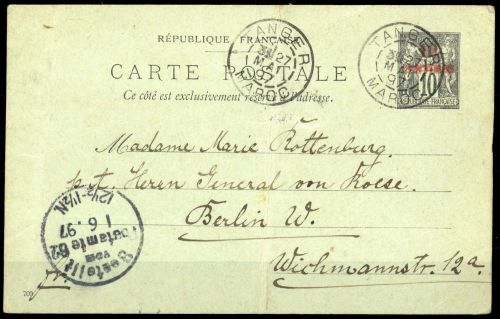 RÉPUBLIQUE FRANÇAISE
CARTE POSTALE
Ce côté est exclusivement réservé à l'adresse.
TANGER
27
MAI
97
MAROC
TANGER
27
MAI
97
MAROC
10
CENTIMOS
10
Madame Marie Rottenburg.
p. t. Herrn General von Roese.
Berlin W.
Wichmannstr. 12a.
Bestellt
vom
Postamte 62
1 6. 97
12½-1½N